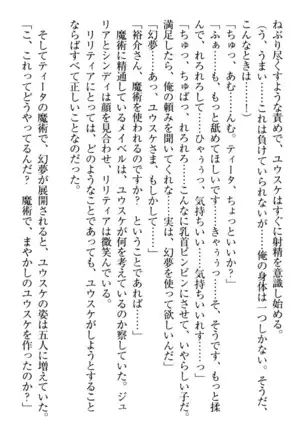 ねぶり尽くすような責めで、ユウスケはすぐに射精を意識し始める。
（う、うまい……これは負けていられないが……俺の身体は一つしかない。そうだ、
こんなときは……！）
「ちゅっ、あむ……んむ。ティータ、ちょっといいか？」
「ふぁっ……も、もっと舐めてほしいです……きゃぅぅっ……そ、そうです、もっと揉
んで、れろれろして……ひゃぅぅっ、気持ちいい……気持ちいいれす……っ」
「ちゅっ、ちゅばっ、れろれろ……こんなに乳首ビンビンにさせて、いやらしい子だ。
満足したら、俺の頼みを聞いてくれな……実は、幻夢を使って欲しいんだ」
「幻夢……あっ、ユウスケさま、もしかして……」
「裕介さん、魔術を使われるのですか？　ということであれば……」
魔術に精通しているメイベルは、ユウスケが何を考えているのか察していた。ジュ
リアとシンディは顔を見合わせ、リリティアは微笑んでいる。
リリティアにとっては、どのようなことであっても、ユウスケがしようとすること
ならばすべて正しいことなのだった。
そしてティータの魔術で、幻夢が展開されると、ユウスケの姿は五人に増えていた。
「こ、これってどうやってるんだ？　魔術で、まやかしのユウスケを作ったのか？」